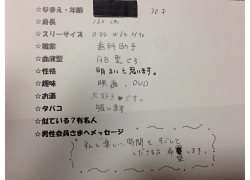 ☆なまえ・年齢 30才
☆身長 160 cm
☆スリーサイズ
☆職業 歯科助手
☆血液型 AB型です
☆性格 明るいと思います。
☆趣味 映画、DVD
☆お酒 大好きです。
☆タバコ 吸います
☆似ている?有名人
☆男性会員さまへメッセージ
私と楽しい時間をすごして
くださる方 希望します。